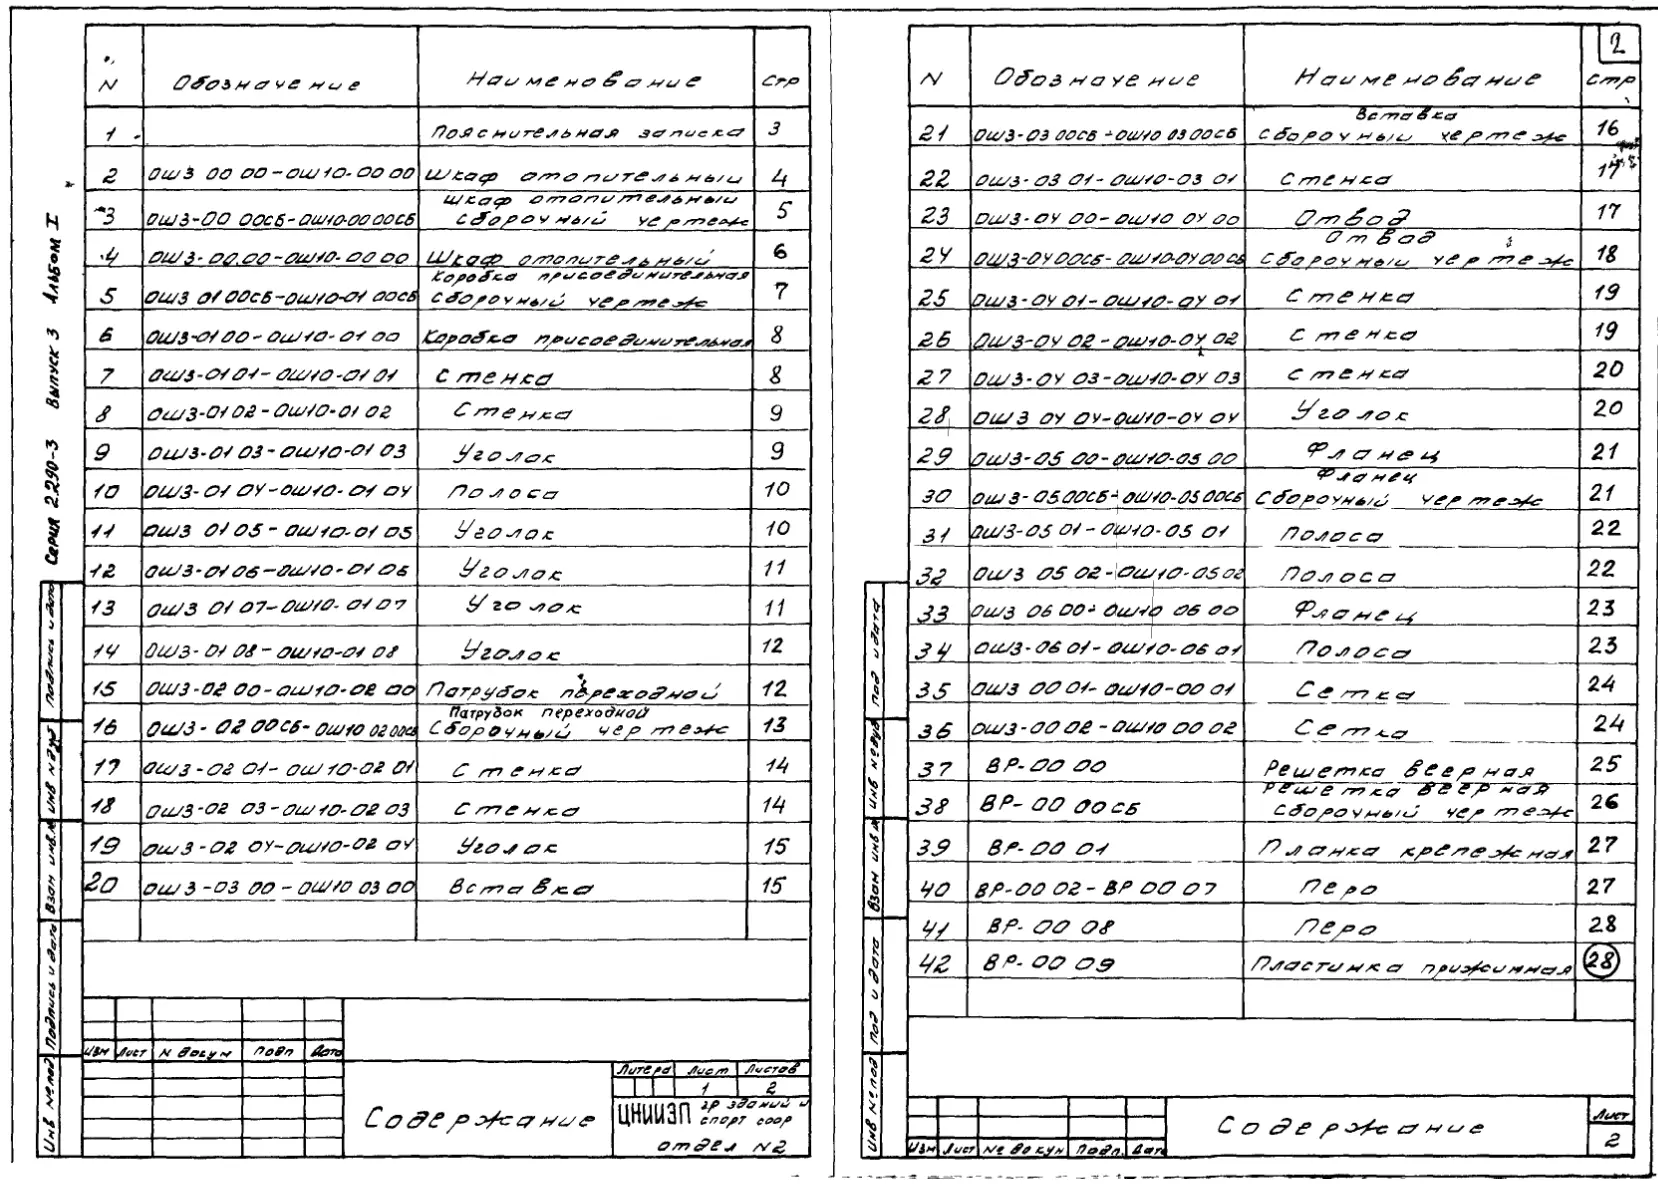 N Обозначение Наименование Стр
1 Пояснительная записка 3
2 ОШ3 00 00-ОШ10-00 00 Шкаф отопительный 4
Шкаф отопительный
3 ОШ3-00 00СБ-ОШ10-00 00СБ сборочный чертеж 5
4 ОШ3-00.00-ОШ10-00 00 Шкаф отопительный 6
Коробка присоединительная
5 ОШ3 01 00СБ-ОШ10-01 00СБ сборочный чертеж 7
6 ОШ3-01 00-ОШ10-01 00 Коробка присоединительная 8
7 ОШ3-01 01-ОШ10-01 01 Стенка 8
8 ОШ3-01 02-ОШ10-01 02 Стенка 9
9 ОШ3-01 03-ОШ10-01 03 Уголок 9
10 ОШ3-01 04-ОШ10-01 04 Полоса 10
11 ОШ3 01 05-ОШ10-01 05 Уголок 10
12 ОШ3-01 06-ОШ10-01 06 Уголок 11
13 ОШ3 01 07-ОШ10-01 07 Уголок 11
14 ОШ3-01 08-ОШ10-01 08 Уголок 12
15 ОШ3-02 00-ОШ10-02 00 Патрубок переходной 12
Патрубок переходной
16 ОШ3-02 00СБ-ОШ10 02 00СБ Сборочный чертеж 13
17 ОШ3-02 01-ОШ10-02 01 Стенка 14
18 ОШ3-02 03-ОШ10-02 03 Стенка 14
19 ОШ3-02 04-ОШ10-02 04 Уголок 15
20 ОШ3-03 00-ОШ10 03 00 Вставка 15
Серия 2.290-3 Выпуск 3 Альбом I
Инв № под
Подпись и дата
Взам инв №
Инв № дуб
Подпись и дата
Изм Лист N докум Подп Дата
Содержание
Литера Лист Листов
1 2
ЦНИИЭП гр зданий и
спорт соор
отдел N2
2
N Обозначение Наименование Стр
Вставка
21 ОШ3-03 00СБ-ОШ10 03 00СБ сборочный чертеж 16
22 ОШ3-03 01-ОШ10-03 01 Стенка 17
23 ОШ3-04 00-ОШ10 04 00 Отвод 17
Отвод
24 ОШ3-04 00СБ-ОШ10-04 00СБ сборочный чертеж 18
25 ОШ3-04 01-ОШ10-04 01 Стенка 19
26 ОШ3-04 02-ОШ10-04 02 Стенка 19
27 ОШ3-04 03-ОШ10-04 03 Стенка 20
28 ОШ3 04 04-ОШ10-04 04 Уголок 20
29 ОШ3-05 00-ОШ10-05 00 Фланец 21
Фланец
30 ОШ3-05.00СБ-ОШ10-05 00СБ Сборочный чертеж 21
31 ОШ3-05 01-ОШ10-05 01 Полоса 22
32 ОШ3 05 02-ОШ10-05 02 Полоса 22
33 ОШ3 06 00-ОШ10 06 00 Фланец 23
34 ОШ3-06 01-ОШ10-06 01 Полоса 23
35 ОШ3 00 01-ОШ10-00 01 Сетка 24
36 ОШ3-00 02-ОШ10 00 02 Сетка 24
37 ВР-00 00 Решетка веерная 25
Решетка веерная
38 ВР-00 00СБ сборочный чертеж 26
39 ВР-00 01 Планка крепежная 27
40 ВР-00 02-ВР 00 07 Перо 27
41 ВР-00 08 Перо 28
42 ВР-00 09 Пластинка прижимная 28
Инв № под
Под и дата
Взам инв №
Инв № дуб
Под и дата
Изм Лист № докум Подп. Дата
Содержание
Лист
2